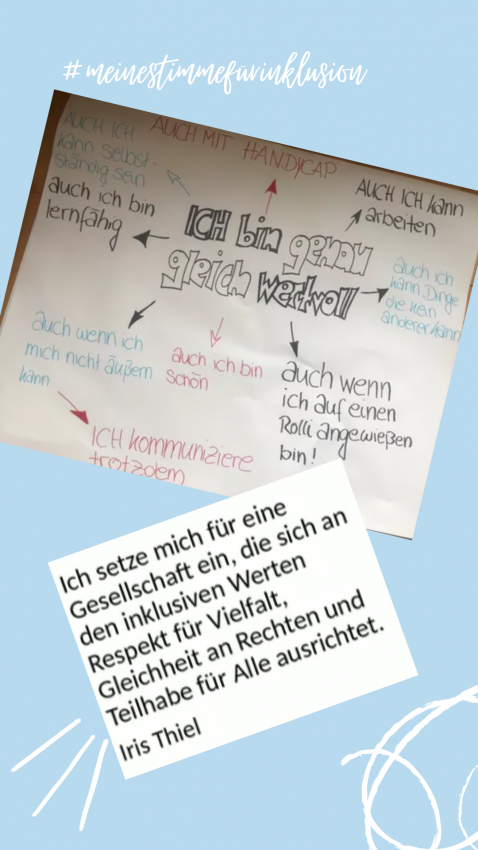 #meinestimmefürinklusion
AUCH ICH
kann selbst-
ständig sein
AUCH MIT HANDICAP
AUCH ICH kann
arbeiten
auch ich bin
lernfähig
ICH bin genau
gleich wertvoll
auch ich
kann Dinge
die kein
anderer kann
auch wenn ich
mich nicht äußern
kann
auch ich bin
schön
auch wenn
ich auf einen
Rolli angewießen
bin!
ICH kommuniziere
trotzdem
Ich setze mich für eine
Gesellschaft ein, die sich an
den inklusiven Werten
Respekt für Vielfalt,
Gleichheit an Rechten und
Teilhabe für Alle ausrichtet.
Iris Thiel